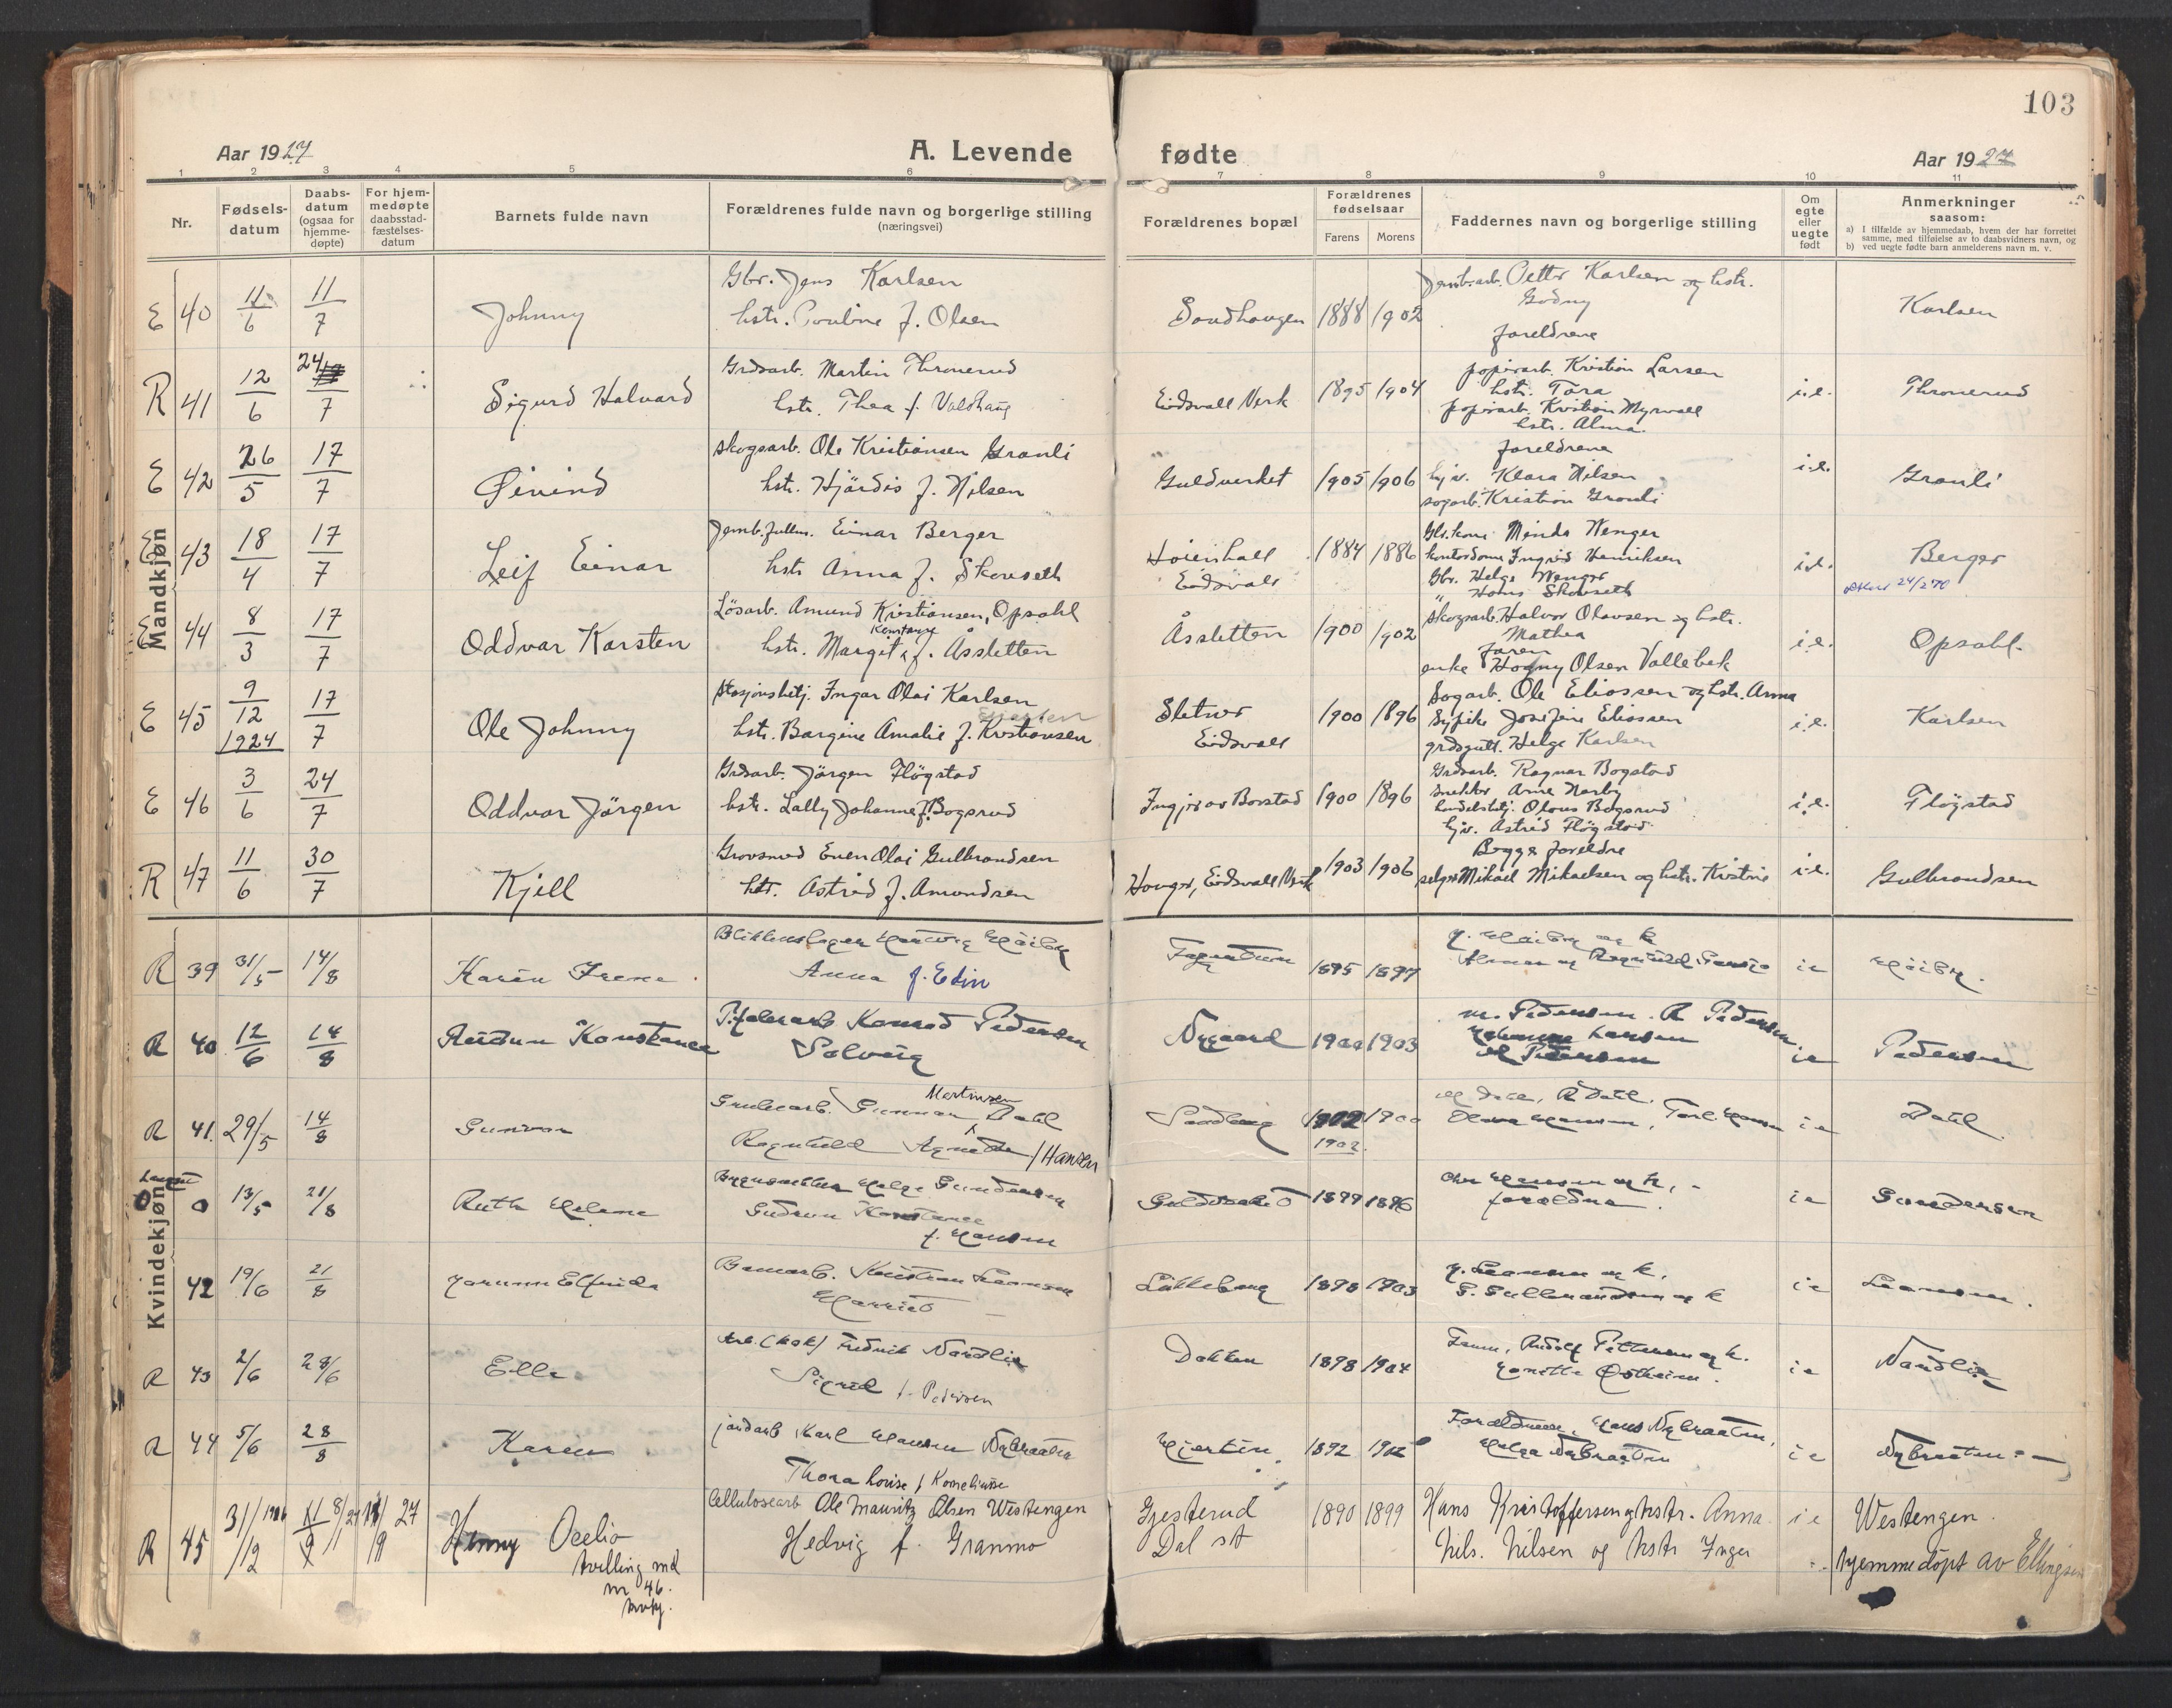 103
Aar 1927
A. Levende fødte
Aar 1927
1 2 3 4 5 6 7 8 9 10 11
Nr.
Fødsels-
datum
Daabs-
datum
(ogsaa for
hjemme-
døpte)
For hjem-
medøpte
daabsstad-
fæstelses-
datum
Barnets fulde navn
Forældrenes fulde navn og borgerlige stilling
(næringsvei)
Forældrenes bopæl
Forældrenes
fødselsaar
Farens Morens
Faddernes navn og borgerlige stilling
Om
egte
eller
uegte
født
Anmerkninger
saasom:
a) I tilfælde av hjemmedaab, hvem der har forrettet
samme, med tilføielse av to daabsvidners navn, og
b) ved uegte fødte barn anmelderens navn m. v.
Mandkjøn
E 40 11/6 11/7 Johnny
Gbr. Jens Karlsen
hstr. Pouline f. Olsen
Sandhaugen 1888 1902
Jernb.arb. Petter Karlsen og hstr.
Godny
foreldrene
Karlsen
R 41 12/6 24/7 Sigurd Halvard
Grdsarb. Martin Thronerud
hstr. Thea f. Valshaug
Eidsvall Verk 1895 1904
papirarb. Kristian Larsen
hstr. Tora
papirarb. Kristian Myrvall
hstr. Alma.
i.e. Thronerud
E 42 26/5 17/7 Øivind
skogsarb. Ole Kristiansen Granli
hstr. Hjördis f. Nilsen
Guldverket 1905 1906
foreldrene
hjv. Klara Nilsen
sagarb. Kristian Granli
i.e. Granli
E 43 18/4 17/7 Leif Einar
Jernb.fullm. Einar Berger
hstr Anna f. Skovseth
Hoienhall
Eidsvall
1884 1886
Gbr.kone Minda Wenger
kontordame Ingrid Henriksen
Gbr. Helge Wenger
" Hans Skovseth
i.e. Berger
24/2 70
E 44 8/3 17/7 Oddvar Karsten
Lösarb. Amund Kristiansen, Opsahl
Konstanse
hstr. Margit f. Åssletten
Åssletten 1900 1902
skogsarb. Halvor Olavsen og hstr.
Mathea
Faren
enke Hogny Olsen Vallebek
i.e. Opsahl.
E 45 9/12 1924 17/7 Ole Johnny
Stasjonsbetj. Ingar Olai Karlsen
hstr. Bargine Amalie f. Kristiansen
Sletner
Eidsvall
1900 1896
Sagarb. Ole Eliassen og hstr. Anna
Sypike Josefine Eliassen
grdsgutt. Helge Karlsen
i.e. Karlsen
E 46 3/6 24/7 Oddvar Jörgen
Grdsarb. Jörgen Flögstad
hstr. Lally Johanne f. Bogsrud
Ingjer av Borstad 1900 1896
Grdsarb. Ragnar Bogstad
snekker Arne Narby
handelsbetj. Olaus Bogsrud
hjv. Astrid Flögstad
i.e. Flögstad
R 47 11/6 30/7 Kjell
Grovsmed Even Olai Gulbrandsen
hstr. Astrid f. Amundsen
Hauger, Eidsvall Verk 1903 1906
Begge foreldre
selger Mikael Mikaelsen og hstr. Kristine
i.e. Gulbrandsen
Kvindekjøn
R 39 31/5 14/8 Karen Irene
Blikkenslager Hartvig Høiby
Anna f. Edin
1895 1897
H. Høiby og k
i e Høiby.
R 40 12/6 14/8 Reidun Konstance
Konrad Pedersen
Solveig
Nygaard 1900 1903
M. Pedersen. R Pedersen
Larsen
Pedersen
i e Pedersen
R 41. 29/5 14/8 Gunvor
Martinsen
Grubearb. Gunnar Dahl
Ragnhild Agnethe f Hansen
Sandberg 1902 1900
1902
Dahl, R Dahl.
i e Dahl.
0 13/5 21/8 Ruth Helene
Helge Gundersen
Gudrun Konstance
f. Hansen
Guldverket 1899 1896
foreldrene.
i e Gundersen
42 19/6 21/8 Jorunn Elfrida
Kristian Larsen
Harriet
Lökkeberg 1898 1903
H. Larsen og k.
G. Gulbrandsen og k
i e Larsen.
R 43 2/6 28/6 Ella
Arb. (kok) Fredrik Nordlie
Sigrid f. Pedersen
Dokken 1898 1904
Faren, Rudolf Pettersen og k.
Østheim.
i e Nordlie
R 44 5/6 28/8 Karen
jordarb Karl Hansen Nybraaten
Thora Louise f Korneliusse
1892 1902
Foreldrene, Hans Nybraaten,
Helga Nybraaten
i e Nybraaten
R 45 31/12 1926 8/1 27 11/9 27 Henny Ocelio
tvilling md
nr 46.
mkj.
Cellulosearb Ole Mauritz Olsen Westengen
Hedvig f. Granmo
Gjesterud
Dal st
1890 1899
Hans Kristoffersen og hstr. Anna.
Nils. Nilsen og hstr Inger
i e Westengen.
hjemmedöpt av Ellingsen